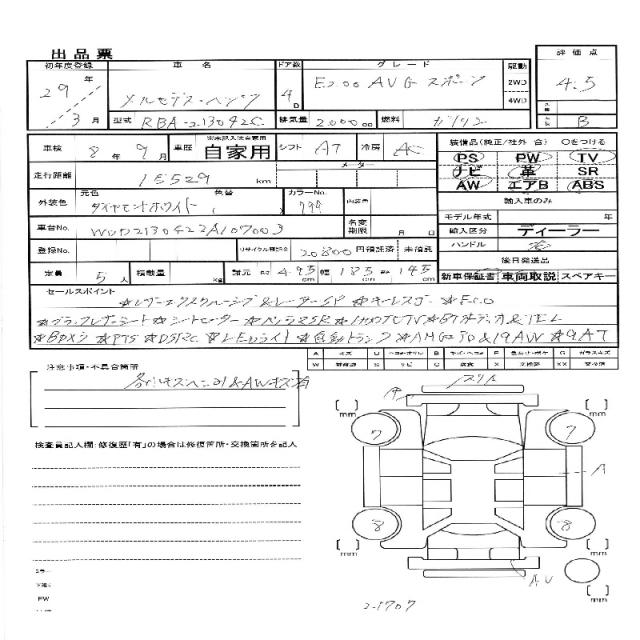 出品票
初年度登録 車名 ドア数 グレード 駆動 評価点
29年 メルセデス・ベンツ 4D E200 AVG スポーツ 2WD 4.5
3月 型式 RBA-213042C 排気量 2000cc 燃料 ガソリン 4WD B
車検 8年9月 車歴 自家用 シフト AT 冷房 AC 装備品(純正/社外 合) ○をつける
走行距離 15529 km メーター PS PW TV
ナビ 革 SR
AW エアB ABS
外装色 元色 ダイヤモンドホワイト 色替 カラーNo. 799 内装色 輸入車のみ
モデル年式 年
車台No. WDD2130422A107003 名変期限 月 日 輸入区分 ディーラー
登録No. リサイクル預託金 20800 円 預託済 未預託 ハンドル 右
定員 5人 積載量 kg 諸元 長さ 495cm 幅 185cm 高さ 145cm 後日発送品
新車保証書 車両取説 スペアキー
セールスポイント
★レザーエクスクルーシブ&レーダーSP ★キーレスゴー ★ECO
★ブラックレザーシート ★シートヒーター ★パノラマSR ★BTオーディオ&TEL
★PTS ★DSRC ★LEDライト ★自動トランク ★19AW ★9AT
注意事項・不具合箇所
検査員記入欄:修復歴「有」の場合は修復箇所・交換箇所を記入
A スリキズ
7 7
A
8 8
mm mm
mm mm
AU
PW
2-1707